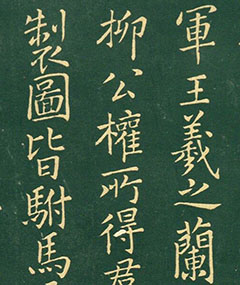 軍王羲之蘭
柳公權所得君
製圖皆駙馬